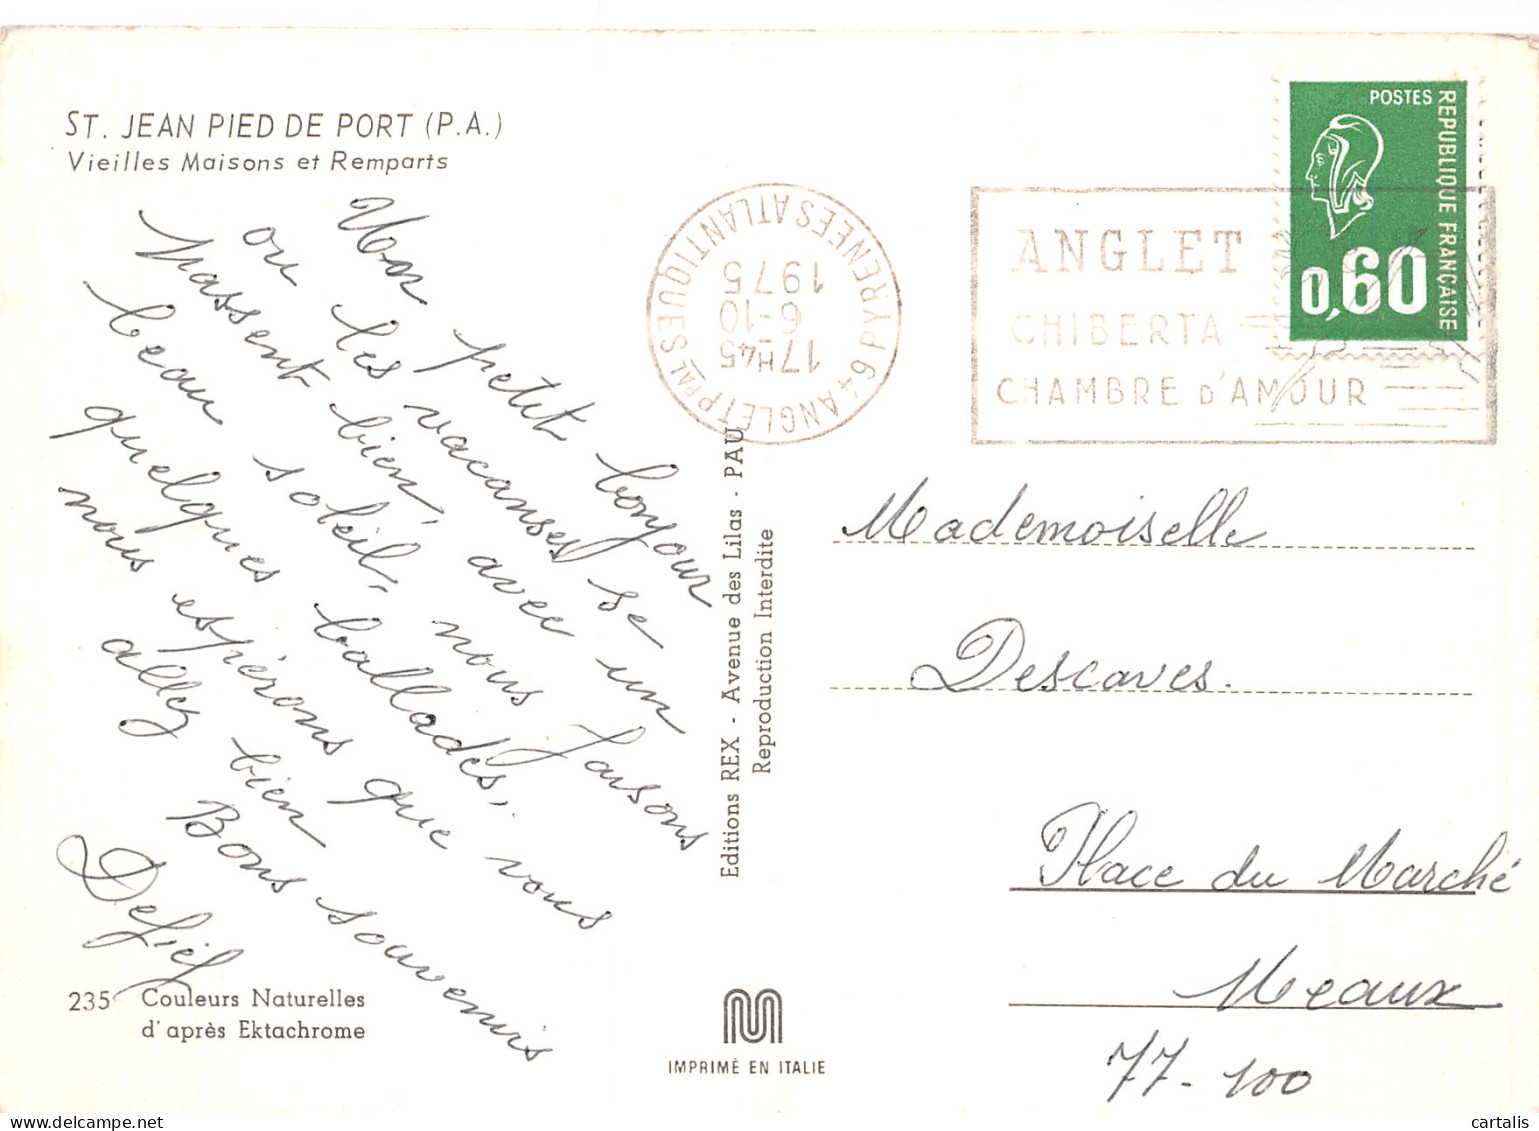 ST. JEAN PIED DE PORT (P.A.)
Vieilles Maisons et Remparts
Mon petit bonjour
ou les vacanses se
passent bien, avec un
beau soleil, nous faisons
quelques ballades,
nous espérons que vous
allez bien
Bons souvenirs
235 Couleurs Naturelles
d'après Ektachrome
Editions REX - Avenue des Lilas - PAU
Reproduction Interdite
IMPRIMÉ EN ITALIE
64 ANGLET PPAL PYRENEES ATLANTIQUES
17H45
6-10
1975
ANGLET
CHIBERTA
CHAMBRE D'AMOUR
POSTES
REPUBLIQUE FRANÇAISE
0,60
Mademoiselle
Descaves.
Place du Marché
Meaux
77-100
delcampe.net
cartalis